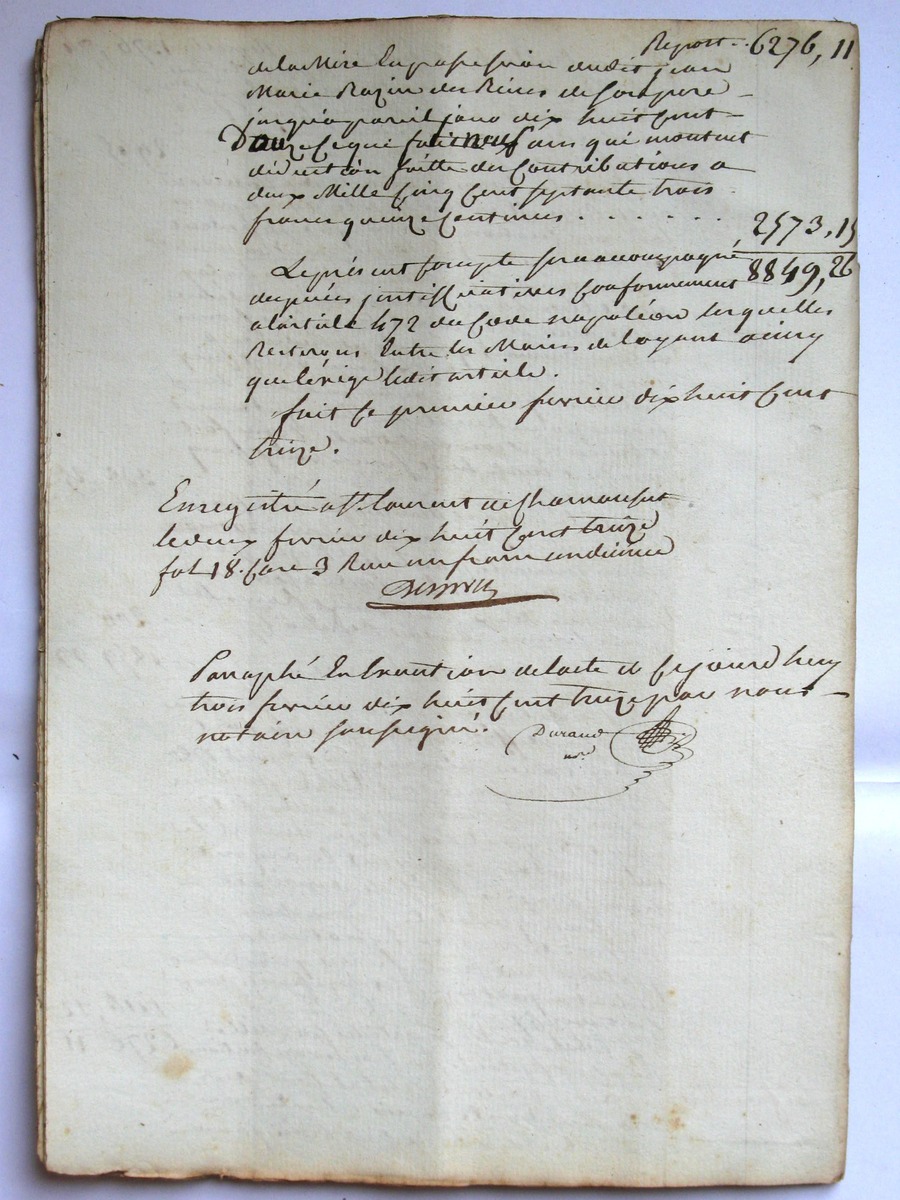 Report... 6276, 11
de la Mère Enpossession dudit jean
Marie Razin des Biens de
jusqua pareil jour dix huit Cent
Douze Ce qui fait neuf ans qui montent
déduction faitte des Contributions a
deux Mille Cinq Cent septante trois
francs quinze Centimes . . . . . . 2573, 15
Le présent Compte sera accompagné 8849, 26
des pièces justificatives Conformement
a larticle 472 du Code napoléon lesquelles
Resterons Entre les Mains de loyant ainsy
que lexige ledit article.
fait Ce premier fevrier dix huit Cent
treize.
Enregistré a St. laurent de Chamousset
le deux fevrier dix huit Cent treize
fol 18. Case 3 Recu un franc un dixieme
Paraphé En Execution de lacte de Cejourd huy
trois fevrier dix huit Cent treize par nous
notaire soussigné. Durand
nore